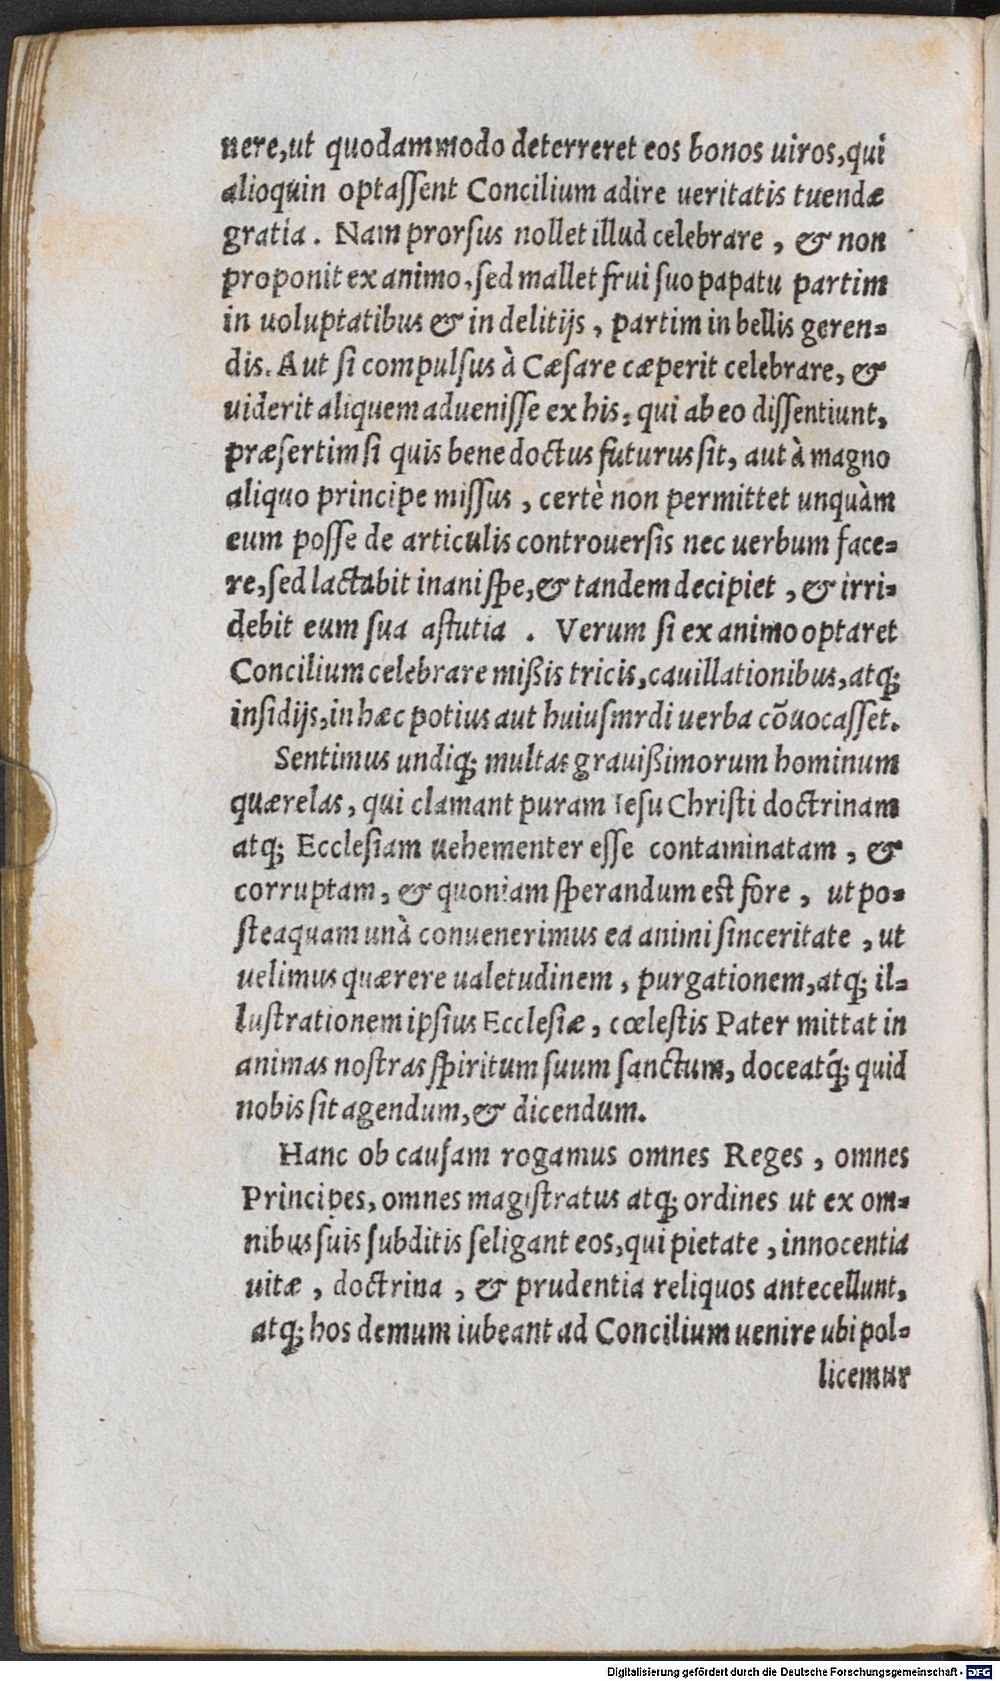 nere,ut quodammodo deterreret eos bonos uiros,qui
alioquin optaſſent Concilium adire ueritatis tuendæ
gratia . Nam prorſus nollet illud celebrare , & non
proponit ex animo, ſed mallet frui ſuo papatu partim
in uoluptatibus & in delitijs , partim in bellis geren-
dis. Aut ſi compulſus à Cæſare cæperit celebrare, &
uiderit aliquem adueniſſe ex his, qui ab eo diſſentiunt,
præſertim ſi quis bene doctus futurus ſit, aut à magno
aliquo principe miſſus , certè non permittet unquàm
eum poſſe de articulis controuerſis nec uerbum face-
re,ſed lactabit inani ſpe,& tandem decipiet , & irri-
debit eum ſua aſtutia . Verum ſi ex animo optaret
Concilium celebrare mißis tricis,cauillationibus,atq;
inſidijs,in hæc potius aut huiuſmrdi uerba cõuocaſſet.
Sentimus undiq; multas grauißimorum hominum
quærelas, qui clamant puram Ieſu Chriſti doctrinam
atq; Eccleſiam uehementer eſſe contaminatam , &
corruptam, & quoniam ſperandum eſt fore , ut po-
ſteaquam unà conuenerimus ea animi ſinceritate , ut
uelimus quærere ualetudinem , purgationem,atq; il-
luſtrationem ipſius Eccleſiæ, cœleſtis Pater mittat in
animas noſtras ſpiritum ſuum ſanctum, doceatq́; quid
nobis ſit agendum,& dicendum.
Hanc ob cauſam rogamus omnes Reges , omnes
Principes, omnes magiſtratus atq; ordines ut ex om-
nibus ſuis ſubditis ſeligant eos,qui pietate , innocentia
uitæ , doctrina , & prudentia reliquos antecellunt,
atq; hos demum iubeant ad Concilium uenire ubi pol-
licemur
Digitalisierung gefördert durch die Deutsche Forschungsgemeinschaft - DFG